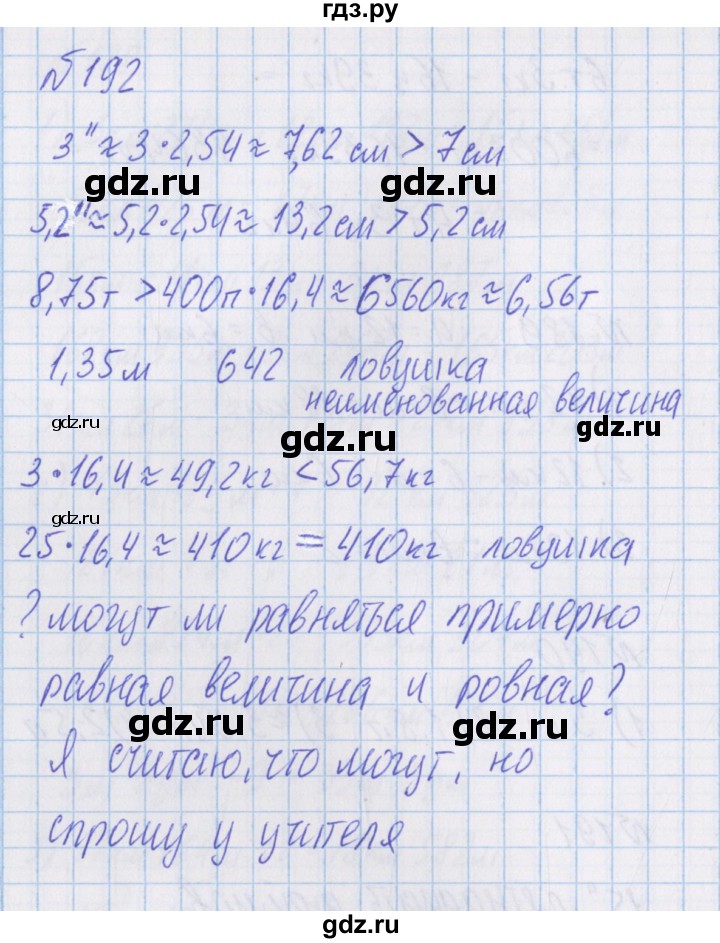 гдз.ру
№192
3" ≈ 3·2,54 ≈ 7,62 см > 7 см
gdz.ru gdz.ru
5,2" ≈ 5,2·2,54 ≈ 13,2 см > 5,2 см
8,75т > 400п·16,4 ≈ 6560кг ≈ 6,56т
1,35м 642 ловушка
неименованная величина
gdz.ru
gdz.ru
3·16,4 ≈ 49,2кг < 56,7кг
gdz.ru
25·16,4 ≈ 410кг = 410кг ловушка
? могут ли равняться примерно
равная величина и ровная?
gdz.ru gdz.ru
Я считаю, что могут, но
спрошу у учителя
gdz.ru
gdz.ru